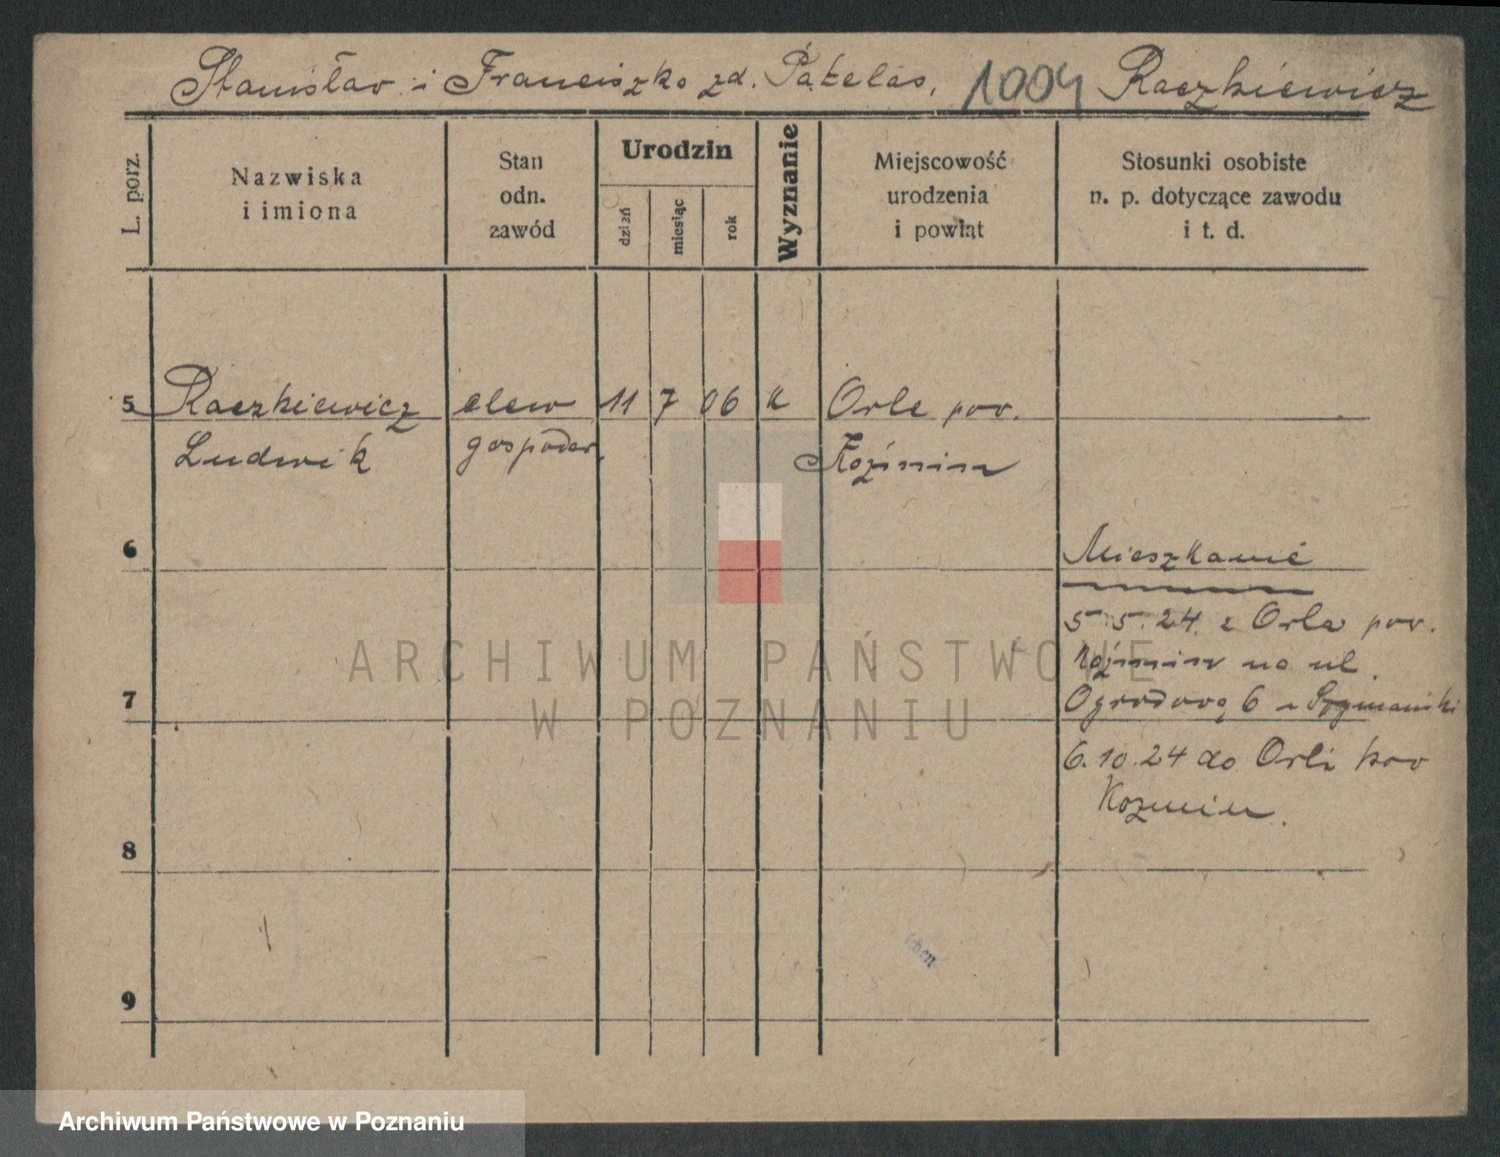 Stanisław i Franciszka zd. Patelas, 1004 Raczkiewicz
L. porz.
Nazwiska
i imiona
Stan
odn.
zawód
Urodzin
dzień
miesiąc
rok
Wyznanie
Miejscowość
urodzenia
i powiat
Stosunki osobiste
n. p. dotyczące zawodu
i t. d.
5 Raczkiewicz elew 11 7 06 k Orle pow.
Ludwik gospodar. Koźmin
6 Mieszkanie
5.5.24. z Orla pow.
Koźmin na ul.
7 Ogrodową 6 u Szymański
6.10.24 do Orli pow
Kozmin.
8
9
ARCHIWUM PAŃSTWOWE
W POZNANIU
Archiwum Państwowe w Poznaniu